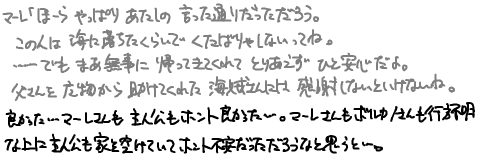 マーレ「ほーら やっぱり あたしの 言った通りだっただろう。
この人は 海に落ちたくらいで くたばりゃしないってね。
……でも まあ無事に 帰ってきてくれて とりあえず ひと安心だよ。
父さんを 左物から 助けてくれた 海賊さんには 感謝しないといけないね。
良かった…マーレさんも 主人公もホント良かった…。マーレさんもボルカノさんも行方不明
な上に主人公も家を空けていてホント不安だっただろうなと思うと…。